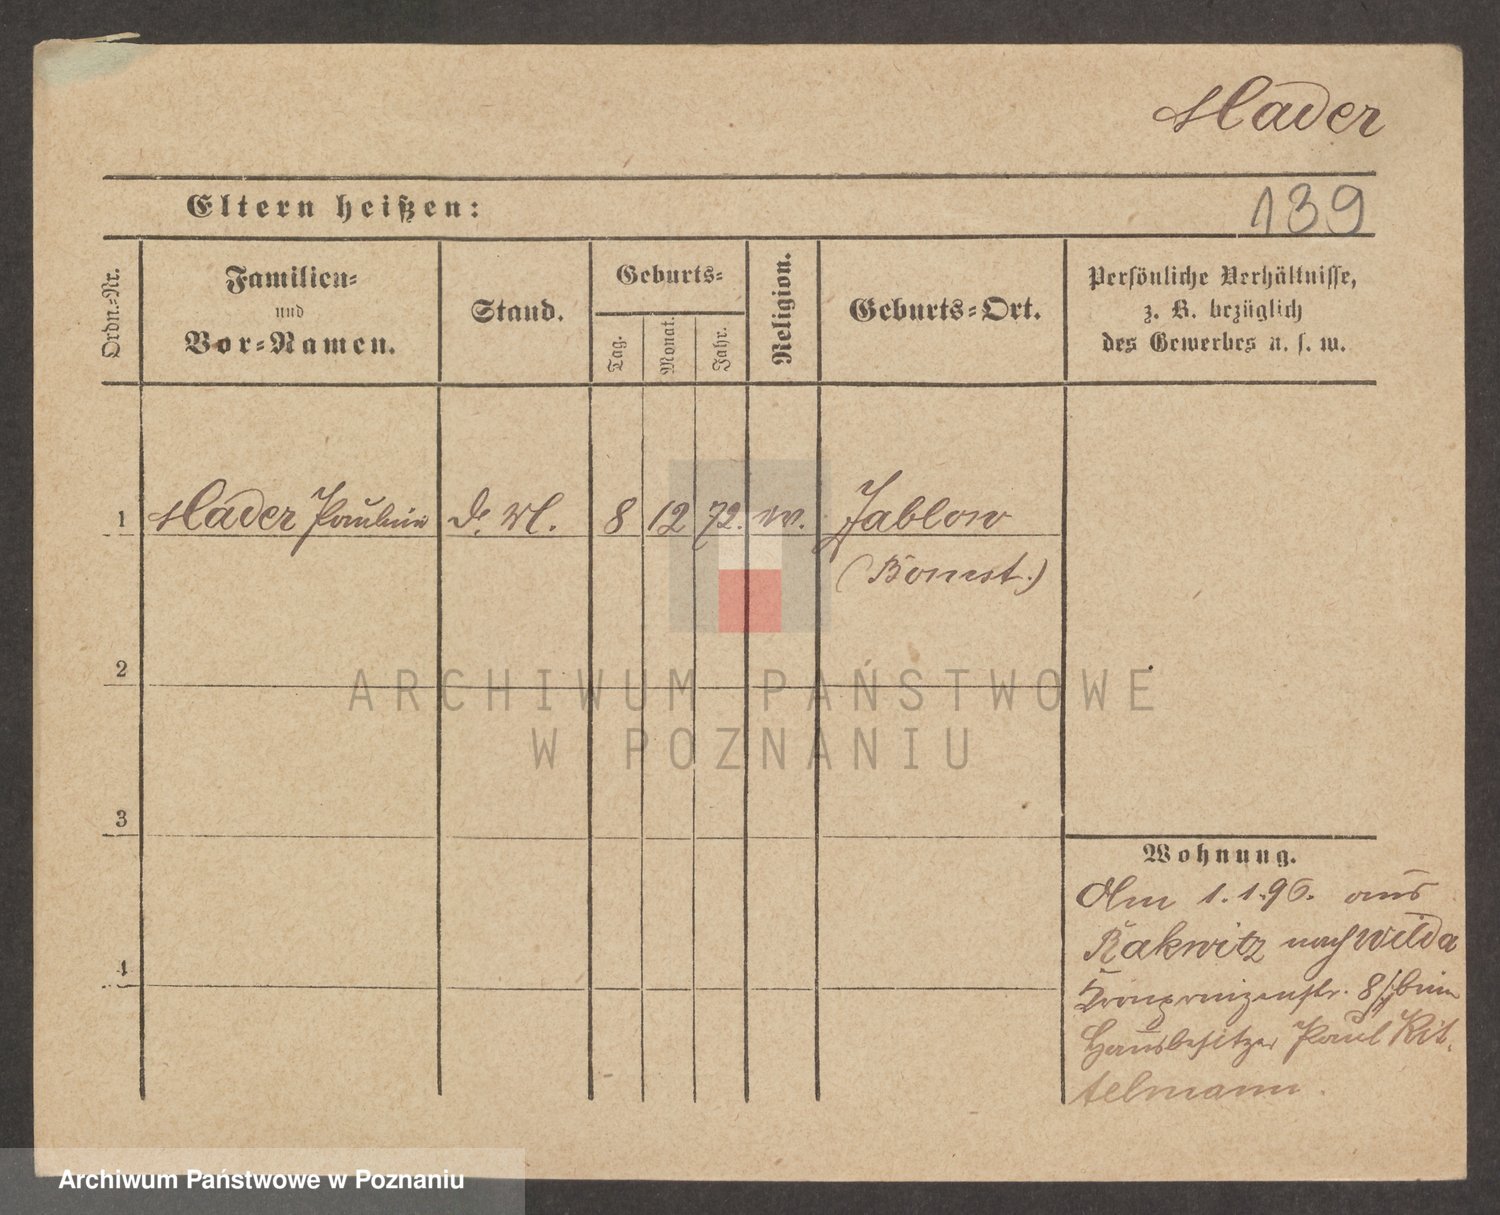 Mader
Eltern heißen:
139
Ordn.-Nr.
Familien-
und
Vor-Namen.
Stand.
Geburts-
Tag.
Monat.
Jahr.
Religion.
Geburts-Ort.
Persönliche Verhältnisse,
z. B. bezüglich
des Gewerbes u. s. w.
1 Mader Pauline 8 12 72. Jablow
(Bomst.)
2
3
4
Wohnung.
Am 1.1.96. aus
Rakwitz nach Wilda
Kronprinzenstr. 8 beim
Hausbesitzer Paul Kit-
telmann.
ARCHIWUM PAŃSTWOWE
W POZNANIU
Archiwum Państwowe w Poznaniu